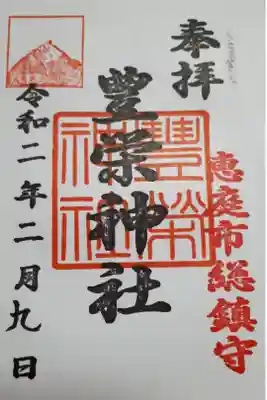 奉拝
恵庭市総鎮守
豊栄神社
豐榮
神社
令和二年二月九日